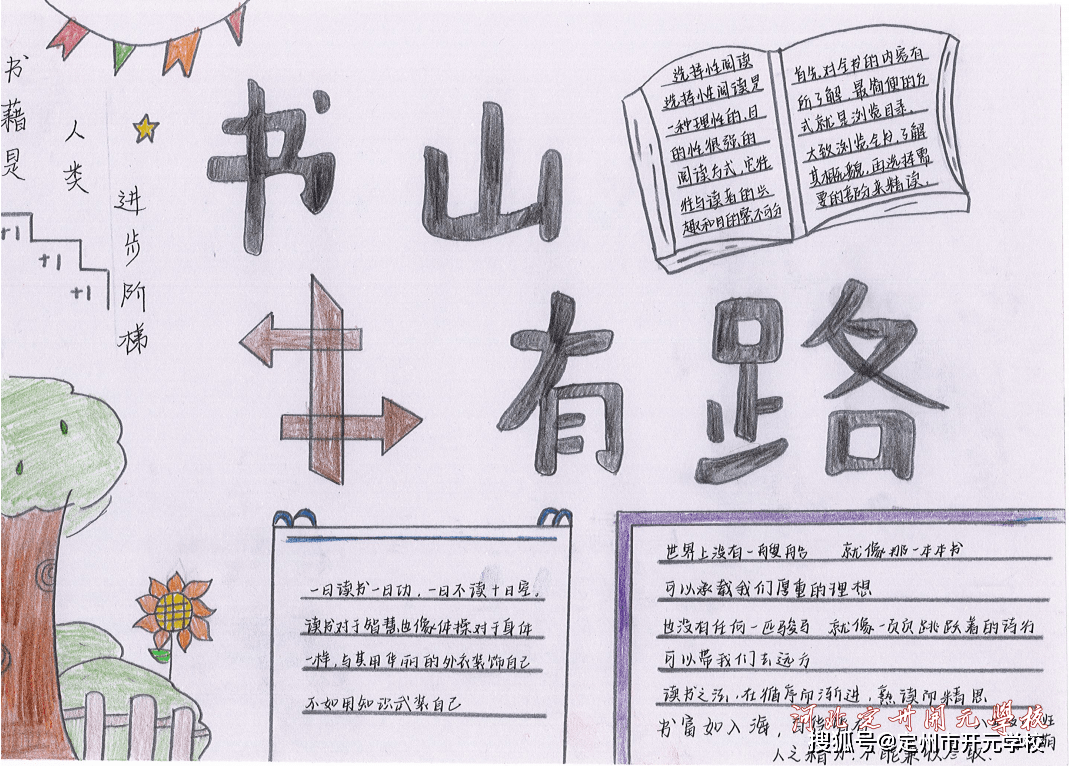 书籍是
人类
进步阶梯
+1
+1
+1
书山
有路
选择性阅读
选择性阅读是
一种理性的,目
的性很强的
阅读方式,它往
往与读者的兴
趣和目的密不可分
首先,对全书的内容有
所了解,最简便的方
式就是浏览目录.
大致浏览全书,了解
其概貌,再选择需
要的部分来精读.
一日读书一日功,一日不读十日空,
读书对于智慧也像体操对于身体
一样,与其用华丽的外衣装饰自己
不如用知识武装自己
世界上没有一艘船 就像那一本本书
可以承载我们厚重的理想
也没有任何一匹骏马 就像一页页跳跃着的诗行
可以带我们去远方
读书之法,在循序而渐进,熟读而精思
书富如入海,百货
人之精力.不能兼收尽取.
河北定州开元学校
搜狐号@定州市开元学校